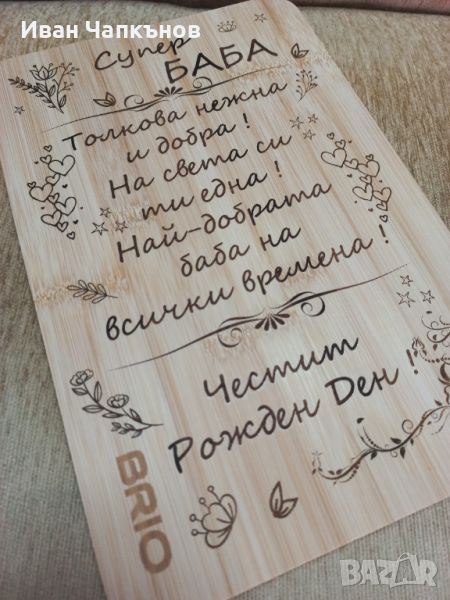 Иван Чапкънов
Супер
БАБА
Толкова нежна
и добра !
На света си
ти една !
Най-добрата
баба на
всички времена !
Честит
Рожден Ден !
BRIO
BAZAR